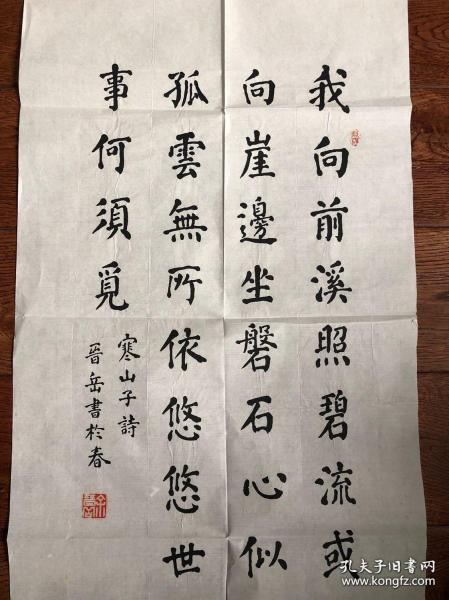 我向前溪照碧流或
向崖邊坐磐石心似
孤雲無所依悠悠世
事何須覓
寒山子詩
晉岳書於春
孔夫子旧书网
www.kongfz.com